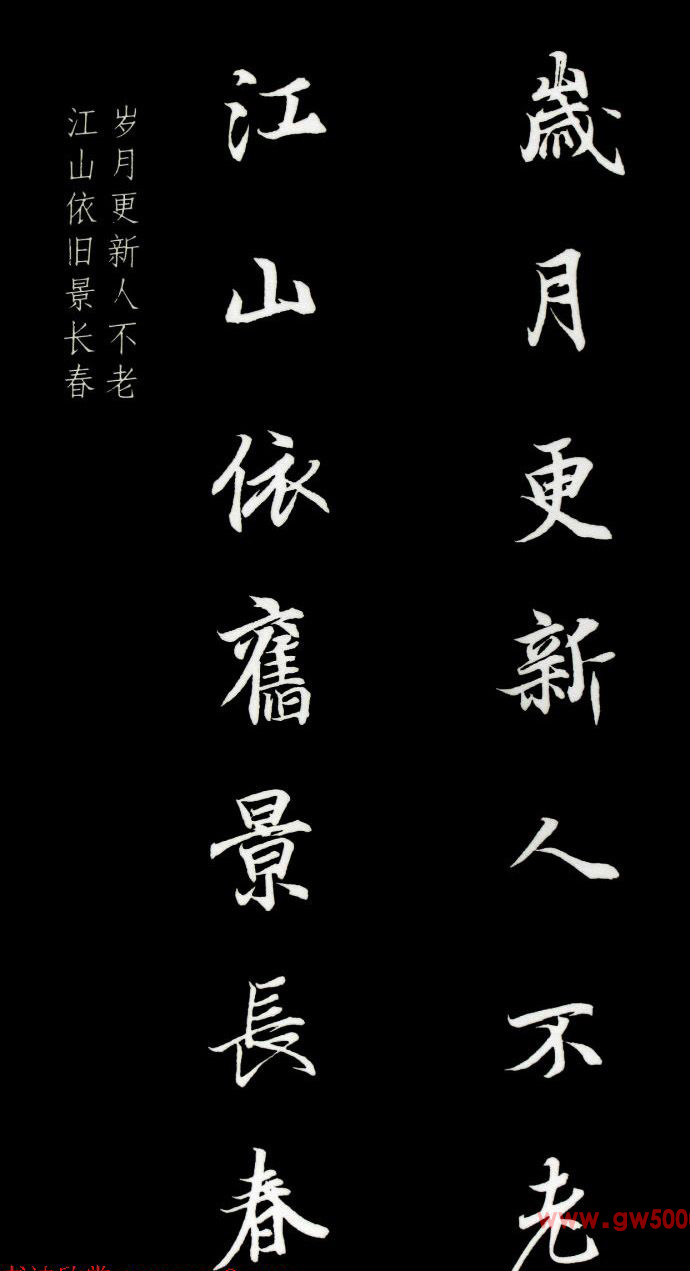 歲月更新人不老
江山依舊景長春
岁月更新人不老
江山依旧景长春
www.gw500